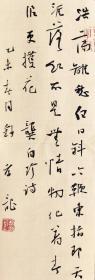 浩蕩離愁白日斜吟鞭東指即天
涯落紅不是無情物化作春
泥更護花 龔自珍詩
乙未春月 龍